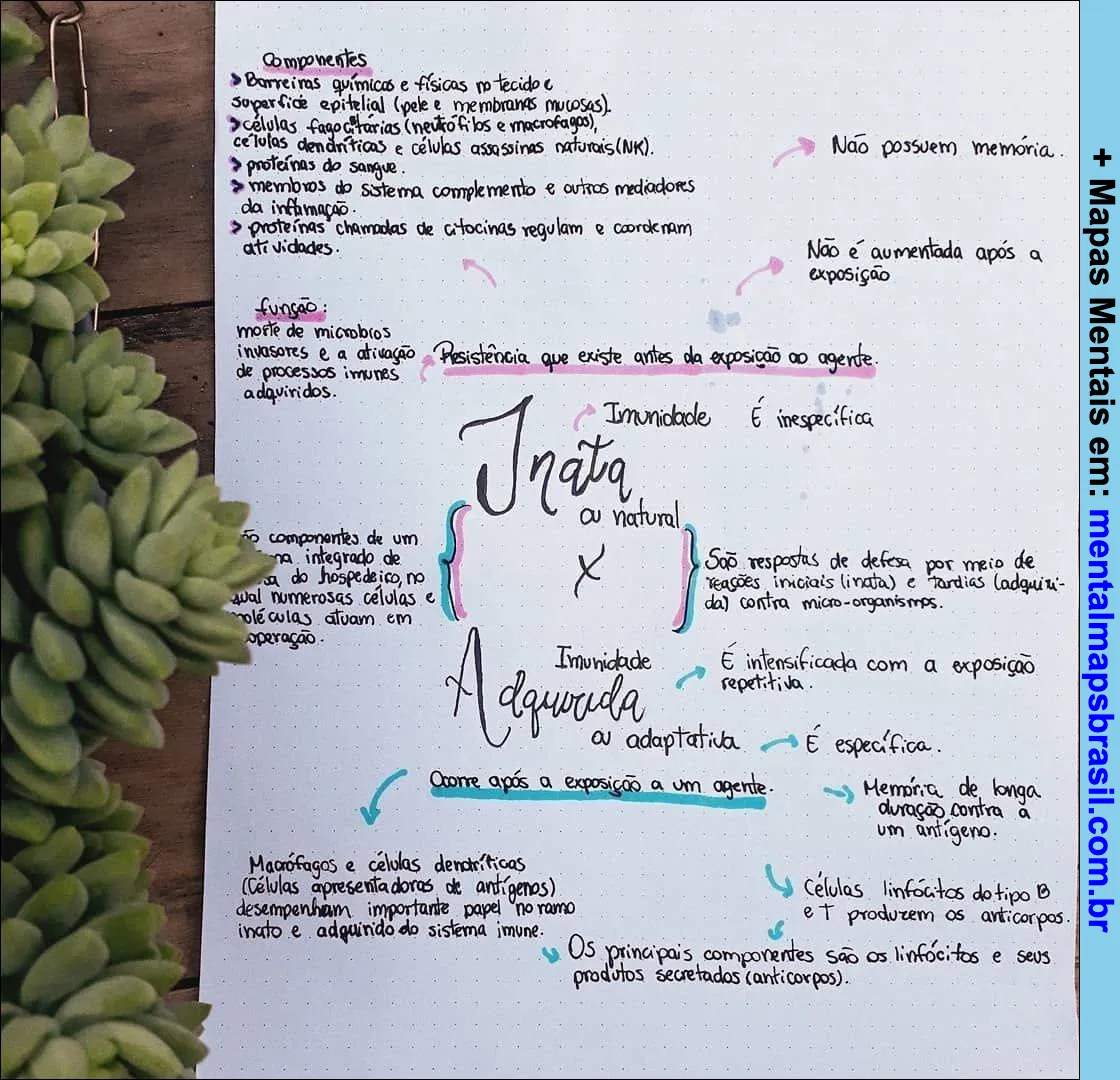 Componentes
> Barreiras químicas e físicas no tecido e
superfície epitelial (pele e membranas mucosas).
> células fagocitárias (neutrófilos e macrofagos),
células dendríticas e células assassinas naturais (NK).
> proteínas do sangue.
> membros do sistema complemento e outros mediadores
da inflamação.
> proteínas chamadas de citocinas regulam e coordenam
atividades.
Não possuem memória.
Não é aumentada após a
exposição
função:
morte de micróbios
invasores e a ativação
de processos imunes
adquiridos.
Resistência que existe antes da exposição ao agente.
Imunidade É inespecífica
Inata
ou natural
X
componentes de um
integrado de
do hospedeiro, no
qual numerosas células e
moléculas atuam em
cooperação.
São respostas de defesa por meio de
reações iniciais (inata) e tardias (adquiri-
da) contra micro-organismos.
Imunidade
Adquirida
ou adaptativa
É intensificada com a exposição
repetitiva.
É específica.
Ocorre após a exposição a um agente.
Memória de longa
duração contra a
um antígeno.
Macrófagos e células dendríticas
(Células apresentadoras de antígenos)
desempenham importante papel no ramo
inato e adquirido do sistema imune.
Células linfócitos do tipo B
e T produzem os anticorpos.
Os principais componentes são os linfócitos e seus
produtos secretados (anticorpos).
+ Mapas Mentais em: mentalmapsbrasil.com.br